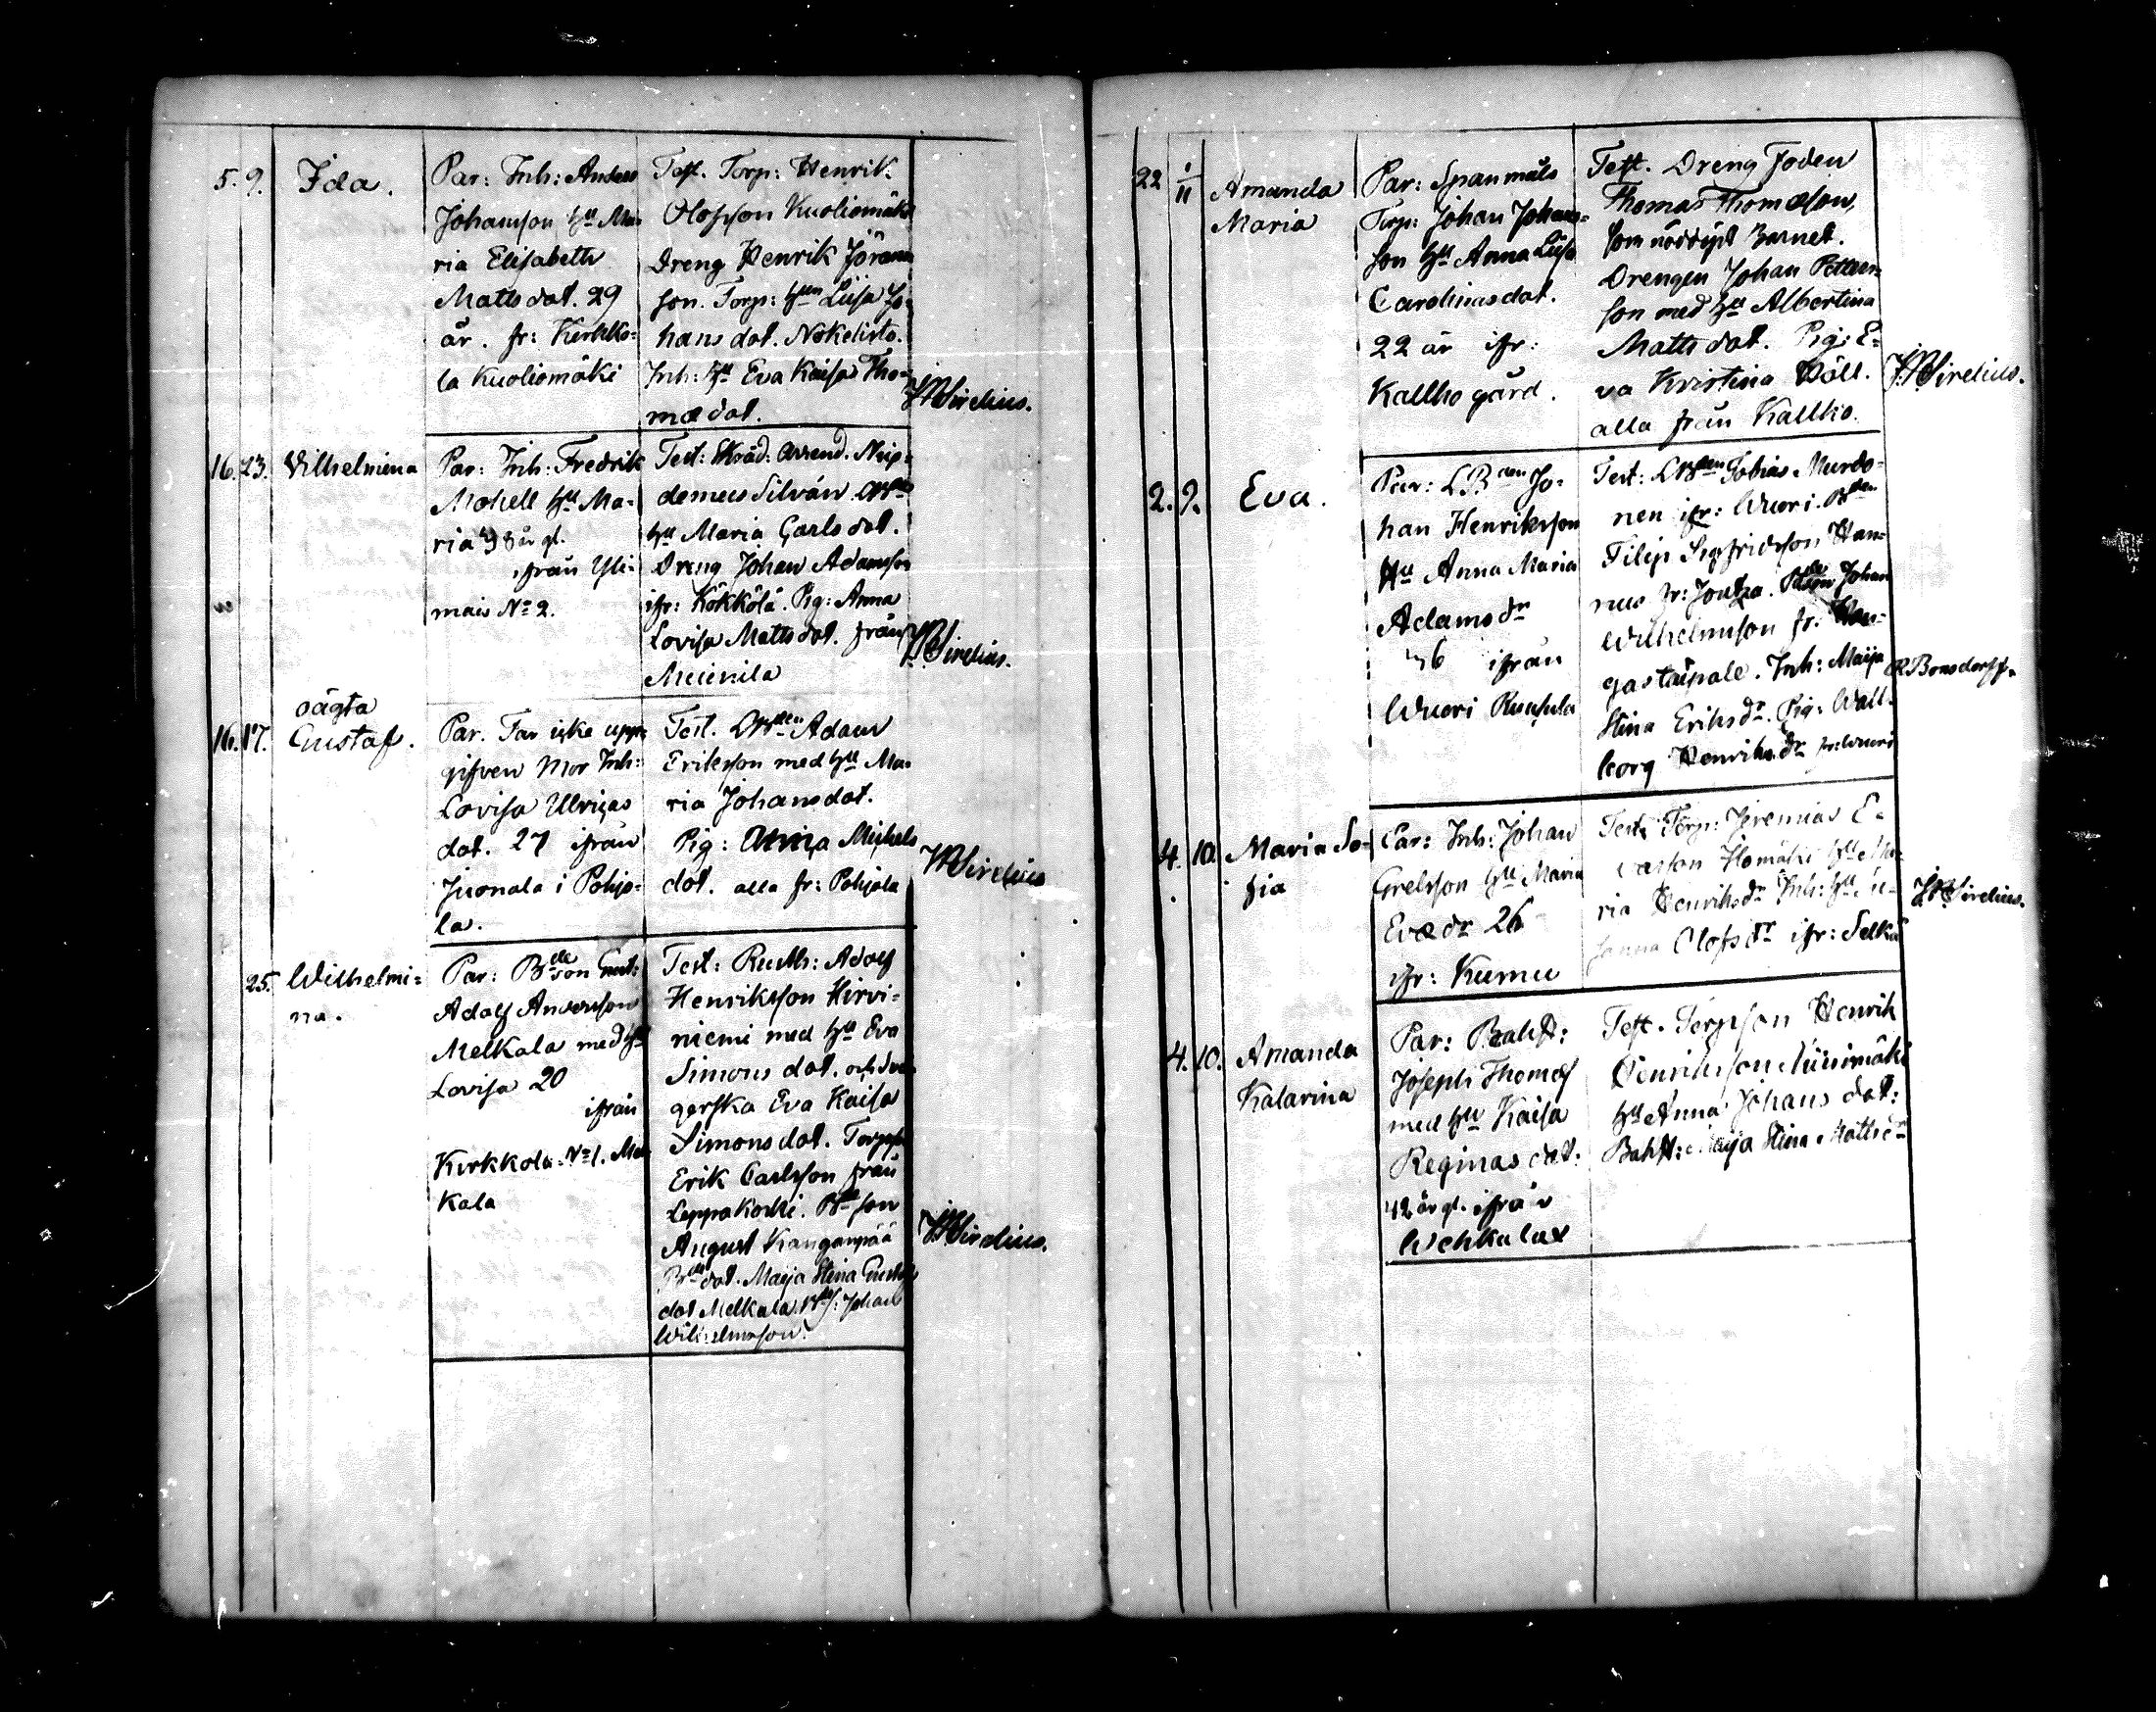 5. 9. Ida.
Par: Inh: Anders
Johansson, hu Ma-
ria Elisabeth
Matts dot. 29
år. fr: Kerkko-
la Kuoliomäki
Test. Torp: Henrik
Olofsson Kuoliomäki
Dreng Henrik Jörans
son. Torp: hun Liisa Jo-
hans dot. Nokelisto.
Inh: hu Eva Kaisa Tho-
mædot.
Sirelius.
16. 23. Vilhelmina
Par: Inh: Fredrik
Mohell hu Ma-
ria 38 år gl.
ifrån Yli-
mais No 2.
Test: Skräd:
demus Silván
hu Maria Carls dot.
Dreng Johan Adamsson
ifr: Kökkölä. Pig: Anna
Lovisa Matts dot. från
Meienila
Sirelius.
16. 17. oägta
Gustaf.
Par. Far icke upp-
gifven Mor Inh:
Lovisa Ulricas
dot. 27 ifrån
Juonala i Pohjo-
la.
Test. Adam
Eriksson med hu Ma-
ria Johansdot.
Pig: Anna Michels
dot. alla fr: Pohjola
Sirelius
25. Wilhelmi-
na.
Par: Bde son Gust:
Adolf Andersson
Melkala med hu
Lovisa 20
ifrån
Kirkkola No 1. Mel-
kala
Test: Rusth: Adolf
Henriksson Hirvi-
niemi med hu Eva
Simons dot. och
Eva Kaisa
Simons dot.
Erik Carlsson från
Leppäkoski. son
August Kanganpää
dot. Maija Stina Gustafs
dot Melkala. Johan
Wilhelmsson.
Sirelius.
22 1/11 Amanda
Maria
Par: Spanmåls
Torp: Johan Johans-
son hu Anna Liisa
Carolinas dot.
22 år ifr:
Kallko gård.
Test. Dreng Foden
Thomas Thomæson,
som nöddöpt Barnet.
Drengen Johan Petters-
son med hu Albertina
Matts dot. Pig: E-
va Kristina Wäll.
alla från Kallko.
Sirelius.
2. 9. Eva.
Par: LBden Jo-
han Henriksson
Hu Anna Maria
Adams dr
36 ifrån
Wuori Ruusula
Test: LBden Tobias Murdo-
nen ifr: Wuori. Bden
Filip Sigfridsson Han-
nus fr: Joutza. Johan
Wilhelmsson fr:
gastaipale. Inh: Maija
Stina Eriks dr. Pig: Wall-
borg Henriks dr fr: Wuori
R Bonsdorff.
4. 10. Maria So-
fia
Par: Inh: Johan
Grelsson hu Maria
Evæ dr 26
ifr: Kumu
Test: Torp: Jeremias E-
vasson Ilomäki hu Ma-
ria Henriks dr Inh: hu Su-
sanna Olofs dr ifr: Selkä
Sirelius.
4. 10. Amanda
Katarina
Par: Bakst:
Joseph Thomæs
med hu Kaisa
Reginas dot:
42 år gl. ifrån
Wehkalax
Test. Torpson Henrik
Henriksson Niinimäki
hu Anna Johans dot:
Bakst: Maija Stina Matts dr